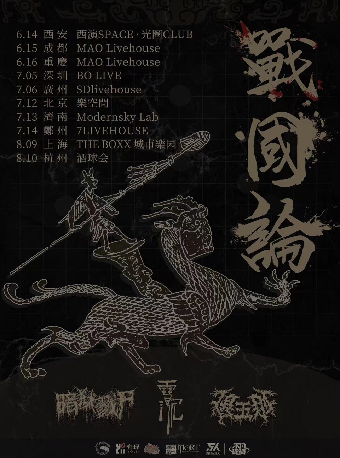 6.14 西安 西演SPACE·光圈CLUB
6.15 成都 MAO Livehouse
6.16 重慶 MAO Livehouse
7.05 深圳 BO LIVE
7.06 廣州 SDlivehouse
7.12 北京 樂空間
7.13 濟南 Modernsky Lab
7.14 鄭州 7LIVEHOUSE
8.09 上海 THE BOXX 城市樂园
8.10 杭州 酒球会
戰國論